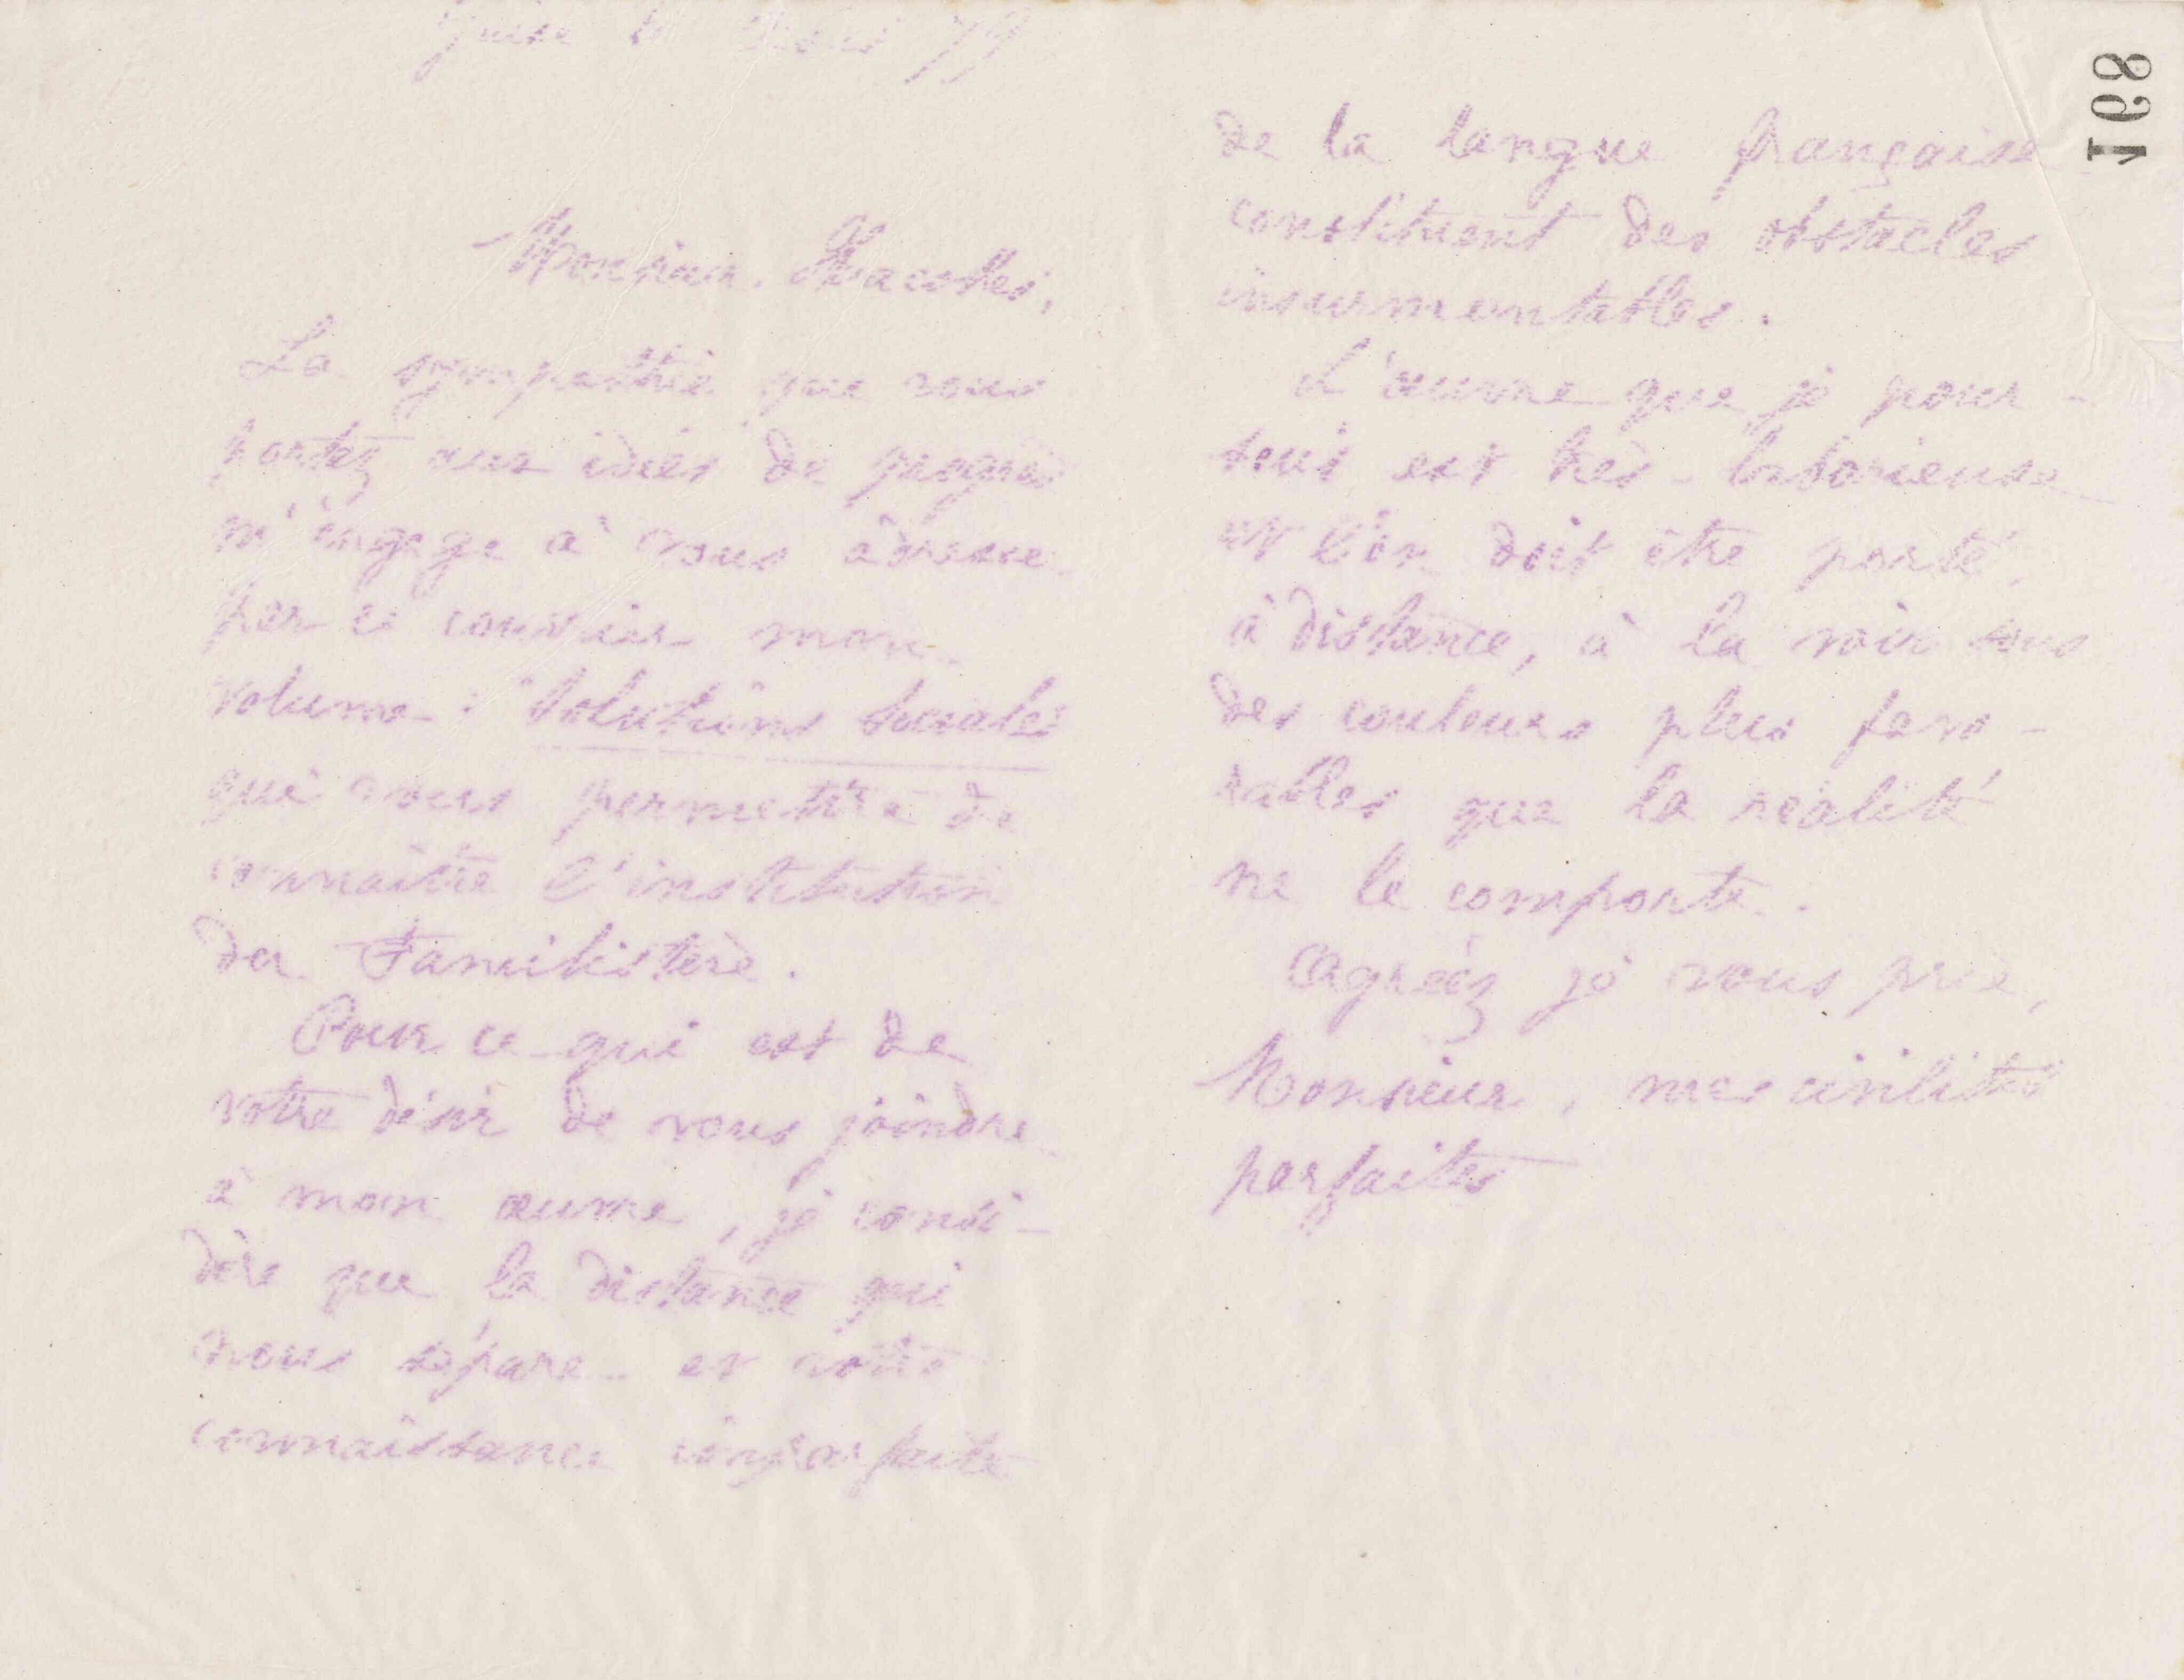 Guise le Mars 79
Monsieur
La sympathie que vous
portez aux idées de progrès
m'engage à vous adresser
par ce courrier mon
volume : "Solutions Sociales
qui vous permettra de
connaître l'institution
du Familistère.
Pour ce qui est de
votre désir de vous joindre
à mon œuvre, je consi-
dère que la distance qui
nous sépare et votre
connaissance imparfaite
de la langue française
constituent des obstacles
insurmontables.
L'œuvre que je pour-
suis est très-laborieuse
et l'on doit être porté,
à distance, à la voir sous
des couleurs plus favo-
rables que la réalité
ne le comporte.
Agréez je vous prie,
Monsieur, mes civilités
parfaites
168